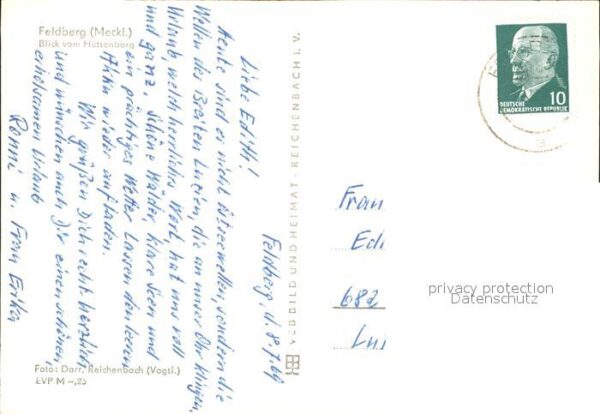 Feldberg (Meckl.)
Blick vom Hüttenberg
Feldberg, d. 8.7.69
Liebe Edith!
Heute sind es nicht Ostseewellen, sondern die
Wellen des Breiten Luzin, die an unser Ohr klingen.
Urlaub, welch herrliches Wort hat uns voll
und ganz. Schöne Wälder, klare Seen und
ein prächtiges Wetter lassen den leeren
Akku wieder aufladen.
Wir grüßen Dich recht herzlich
und wünschen auch Dir einen schönen,
erholsamen Urlaub
Ronni u. Frau Erika
Foto: Darr, Reichenbach (Vogtl.)
EVP M –,25
VEB BILD UND HEIMAT · REICHENBACH i. V.
DEUTSCHE
DEMOKRATISCHE REPUBLIK
10
Frau
Edi
682
Lui
privacy protection
Datenschutz